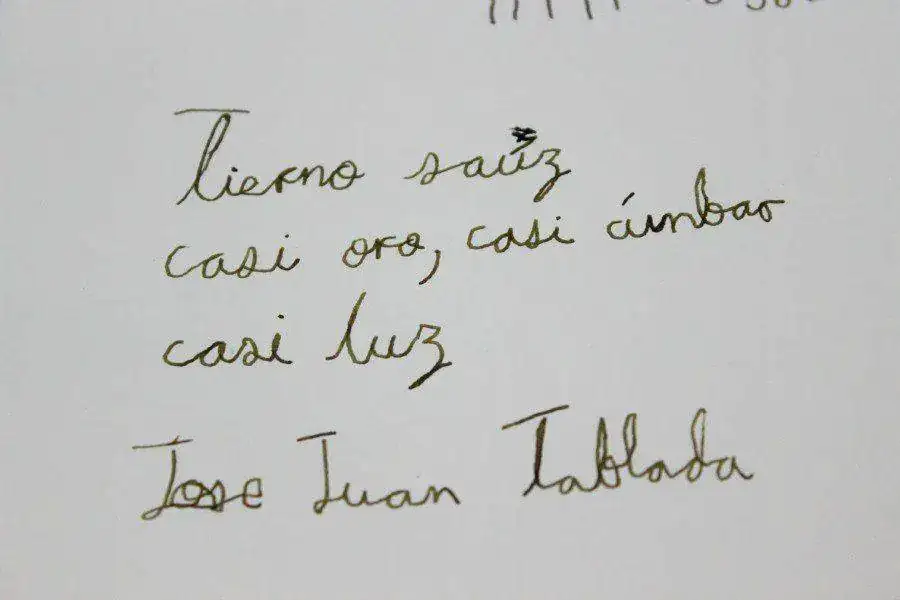 Tierno saúz
casi oro, casi ámbar
casi luz
Jose Juan Tablada